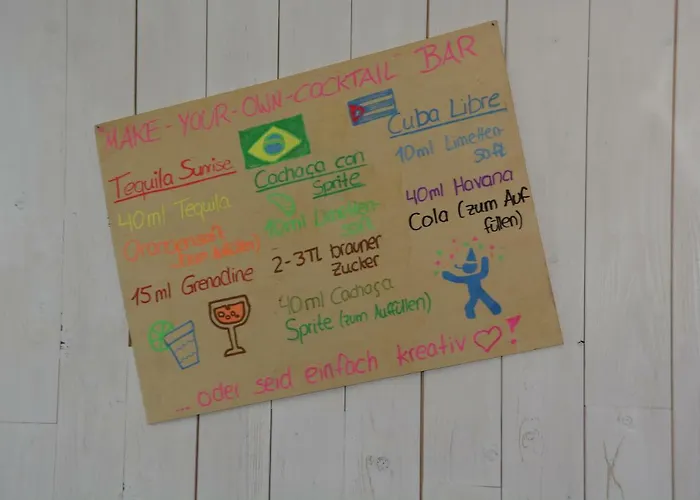 "MAKE-YOUR-OWN-COCKTAIL" BAR
Tequila Sunrise
40ml Tequila
Orangensaft
(zum Auffüllen)
15ml Grenadine
Cachaça con
Sprite
10ml Limetten-
saft
2-3TL brauner
Zucker
40ml Cachaça
Sprite (zum Auffüllen)
Cuba Libre
10ml Limetten-
saft
40ml Havana
Cola (zum Auf-
füllen)
... oder seid einfach kreativ ♡!